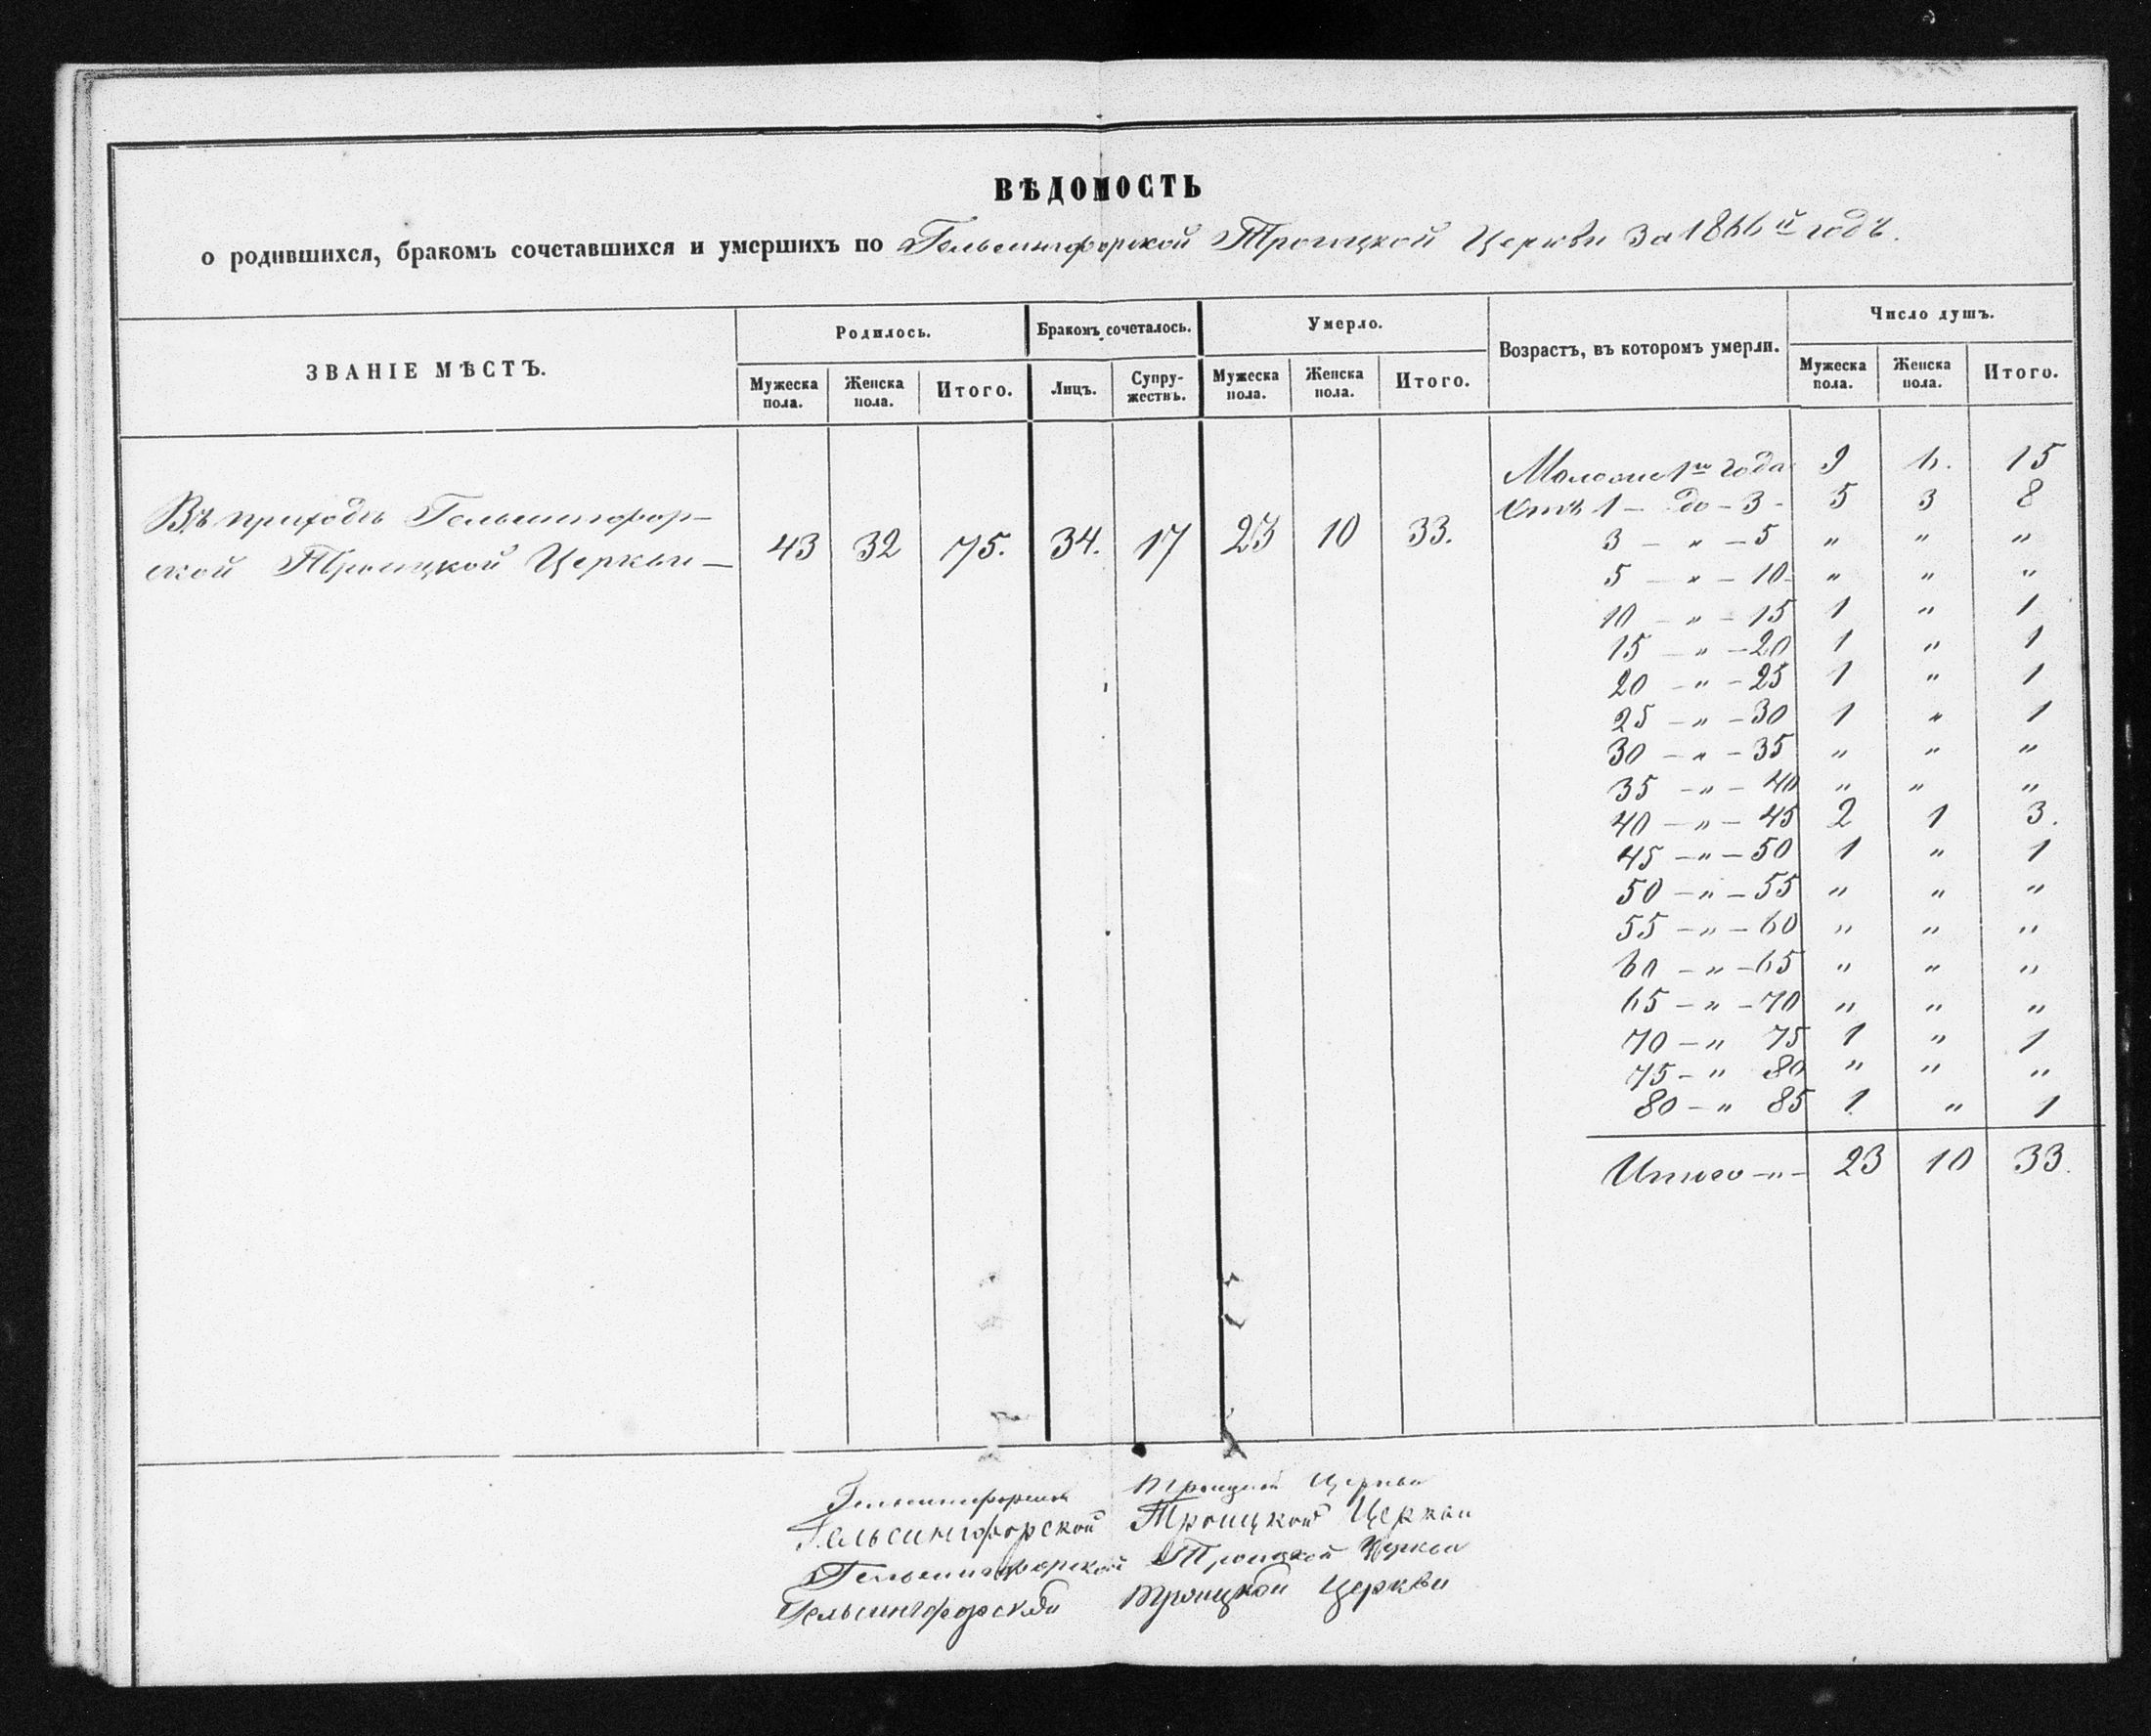 ВѢДОМОСТЬ
о родившихся, бракомъ сочетавшихся и умершихъ по Гельсингфорской Троицкой Церкви за 1866й годъ.
ЗВАНІЕ МѢСТЪ. Родилось. Бракомъ сочеталось. Умерло. Возрастъ, въ которомъ умерли. Число душъ.
Мужеска пола. Женска пола. Итого. Лицъ. Супружествъ. Мужеска пола. Женска пола. Итого. Мужеска пола. Женска пола. Итого.
Въ приходѣ Гельсингфор-
ской Троицкой Церкви — 43 32 75. 34. 17 23 10 33.
Моложе 1го года 9 6. 15
Отъ 1 — до — 3 - 5 3 8
3 — „ — 5 „ „ „
5 — „ — 10 - „ „ „
10 — „ — 15 1 „ 1
15 — „ — 20 1 „ 1
20 — „ — 25 1 „ 1
25 — „ — 30 1 „ 1
30 — „ — 35 „ „ „
35 — „ — 40 „ „ „
40 — „ — 45 2 1 3.
45 — „ — 50 1 „ 1
50 — „ — 55 „ „ „
55 — „ — 60 „ „ „
60 — „ — 65 „ „ „
65 — „ — 70 „ „ „
70 — „ 75 1 „ 1
75 — „ 80 „ „ „
80 — „ 85 1 „ 1
Итого — „ — 23 10 33.
Гельсингфорской Троицкой Церкви
Гельсингфорской Троицкой Церкви
Гельсингфорской Троицкой Церкви
Гельсингфорской Троицкой Церкви